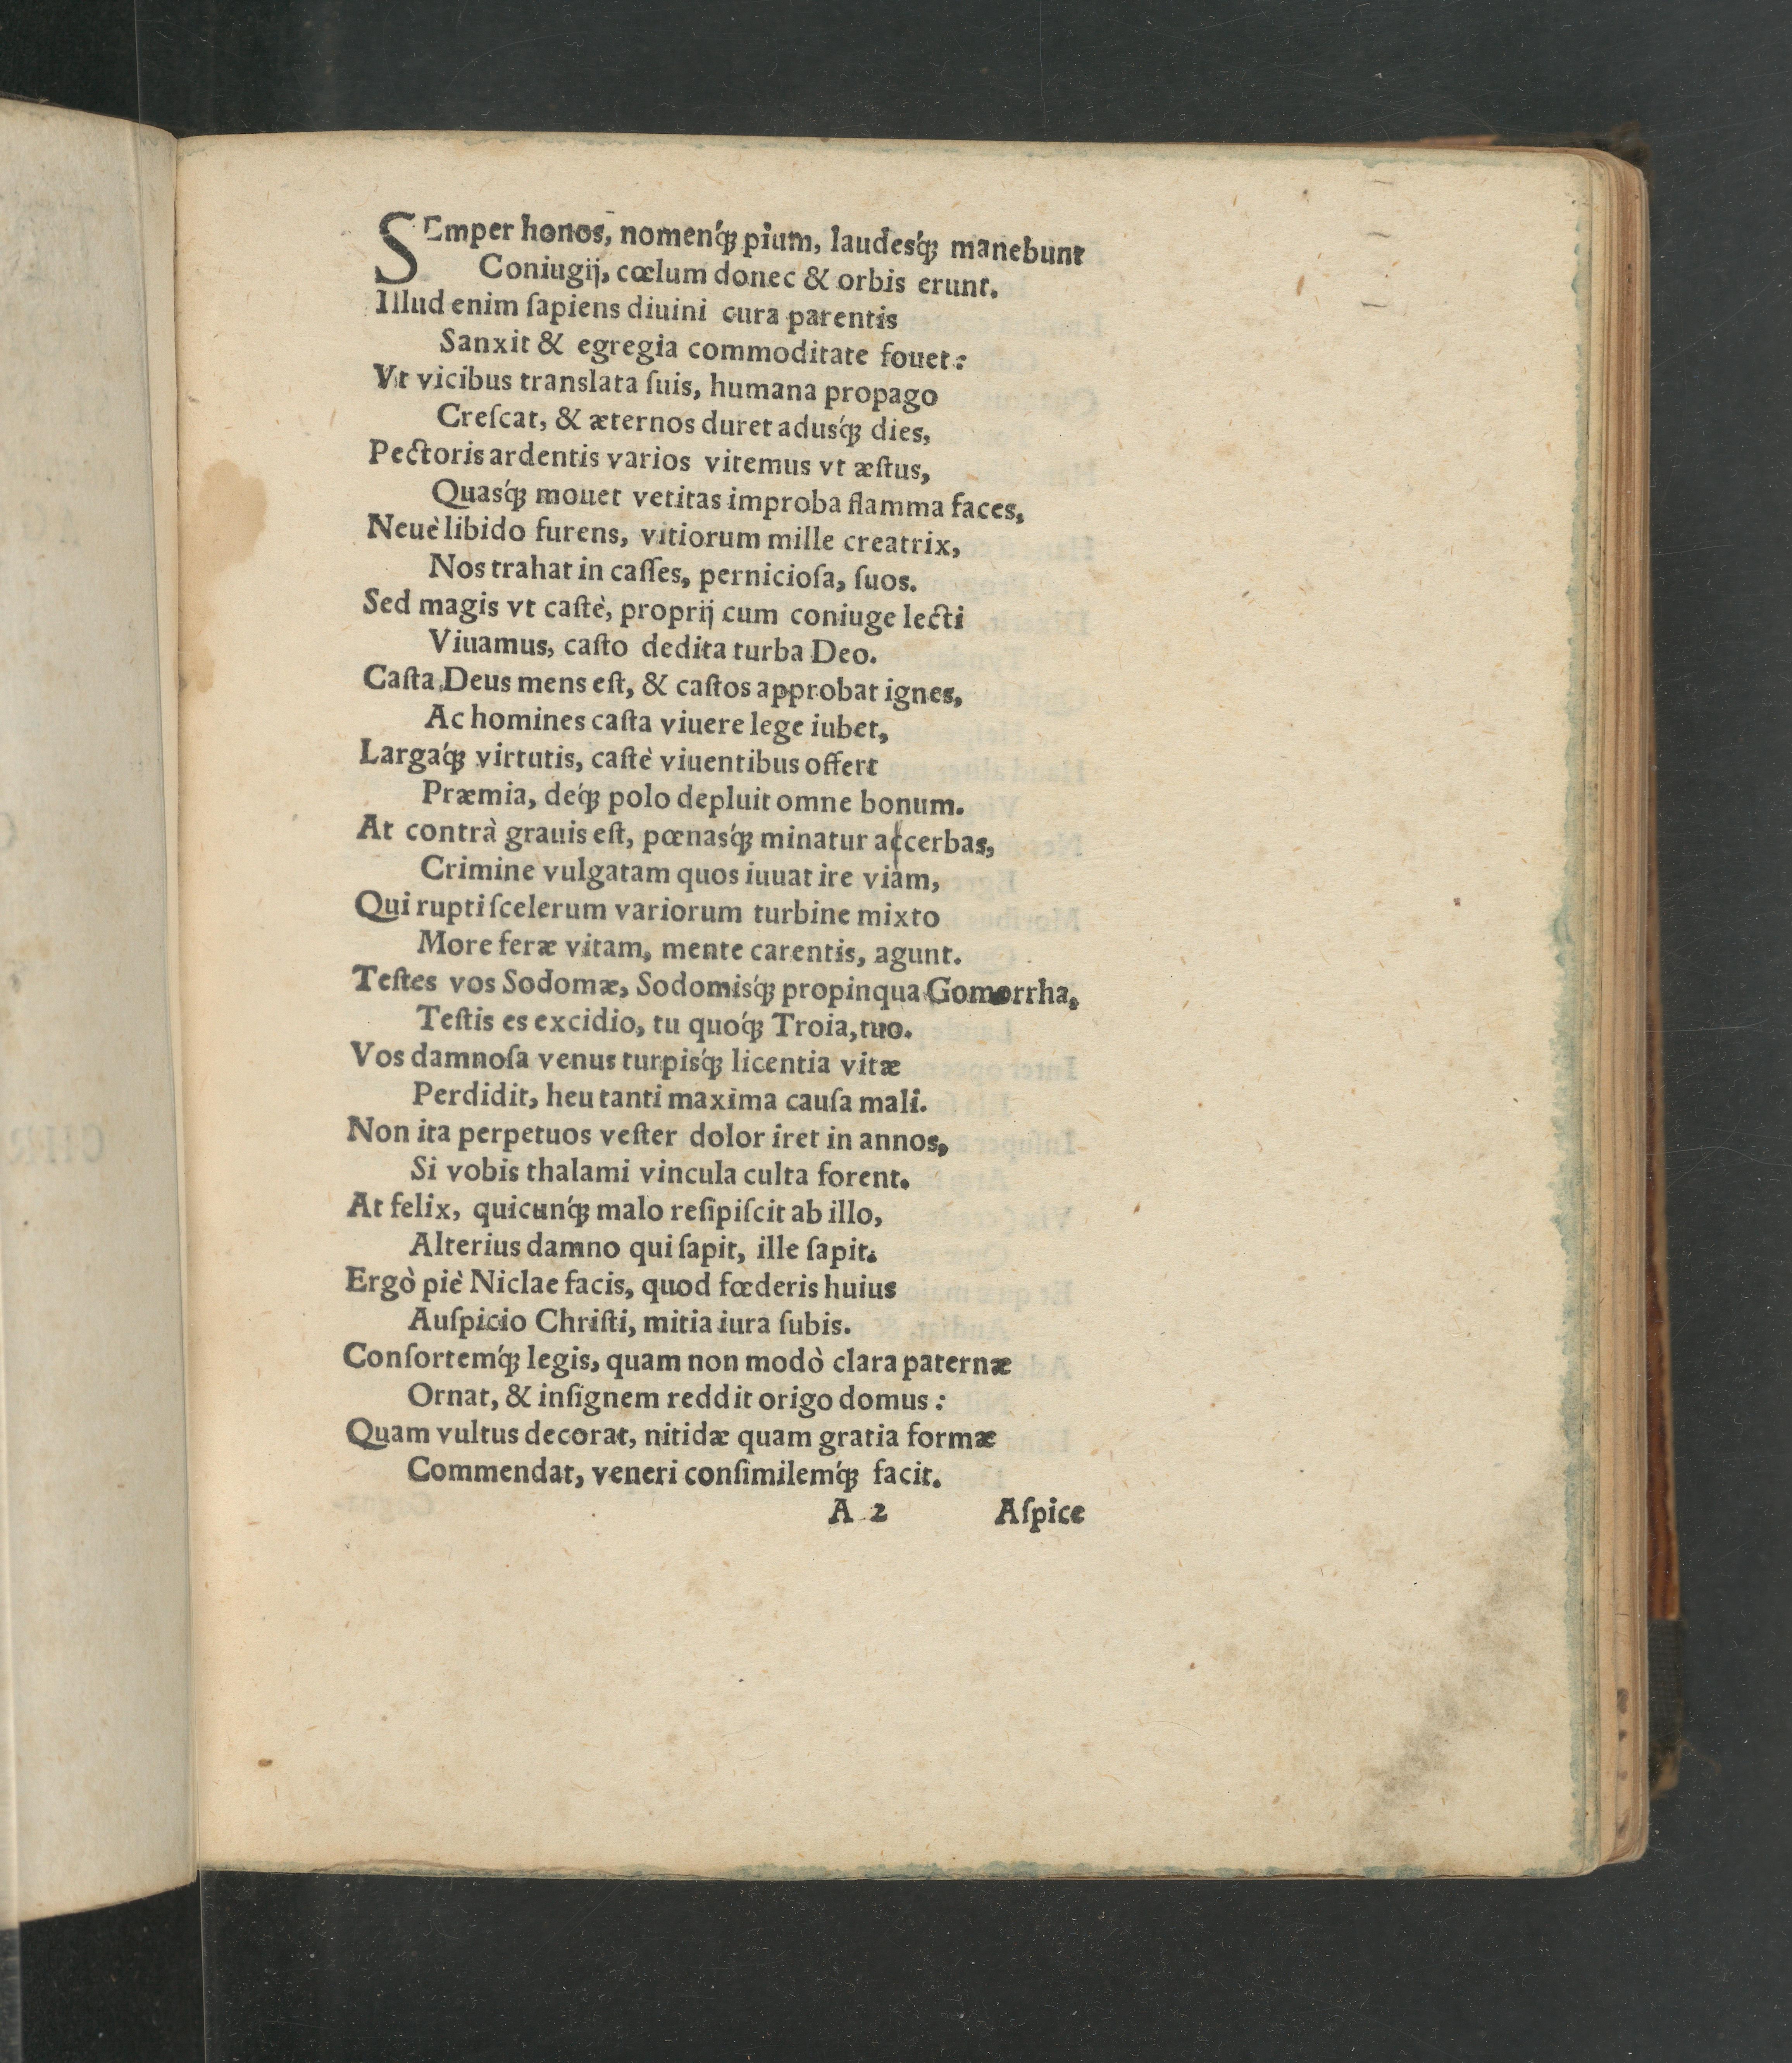 SEmper honos, nomenq́ꝫ pium, laudesq́ꝫ manebunt
Coniugij, cœlum donec & orbis erunt.
Illud enim ſapiens diuini cura parentis
Sanxit & egregia commoditate fouet:
Vt vicibus translata ſuis, humana propago
Creſcat, & æternos duret adusq́ꝫ dies,
Pectoris ardentis varios vitemus vt æſtus,
Quasq́ꝫ mouet vetitas improba flamma faces,
Neuè libido furens, vitiorum mille creatrix,
Nos trahat in caſſes, pernicioſa, ſuos.
Sed magis vt caſtè, proprij cum coniuge lecti
Viuamus, caſto dedita turba Deo.
Caſta Deus mens eſt, & caſtos approbat ignes,
Ac homines caſta viuere lege iubet,
Largaq́ꝫ virtutis, caſtè viuentibus offert
Præmia, deq́ꝫ polo depluit omne bonum.
At contrà grauis eſt, pœnasq́ꝫ minatur accerbas,
Crimine vulgatam quos iuuat ire viam,
Qui rupti ſcelerum variorum turbine mixto
More feræ vitam, mente carentis, agunt.
Teſtes vos Sodomæ, Sodomisq́ꝫ propinqua Gomorrha,
Teſtis es excidio, tu quoq́ꝫ Troia, tuo.
Vos damnoſa venus turpisq́ꝫ licentia vitæ
Perdidit, heu tanti maxima cauſa mali.
Non ita perpetuos veſter dolor iret in annos,
Si vobis thalami vincula culta forent.
At felix, quicunq́ꝫ malo reſipiſcit ab illo,
Alterius damno qui ſapit, ille ſapit.
Ergò piè Niclae facis, quod fœderis huius
Auſpicio Chriſti, mitia iura ſubis.
Conſortemq́ꝫ legis, quam non modò clara paternæ
Ornat, & inſignem reddit origo domus:
Quam vultus decorat, nitidæ quam gratia formæ
Commendat, veneri conſimilemq́ꝫ facit.
A 2 Aſpice